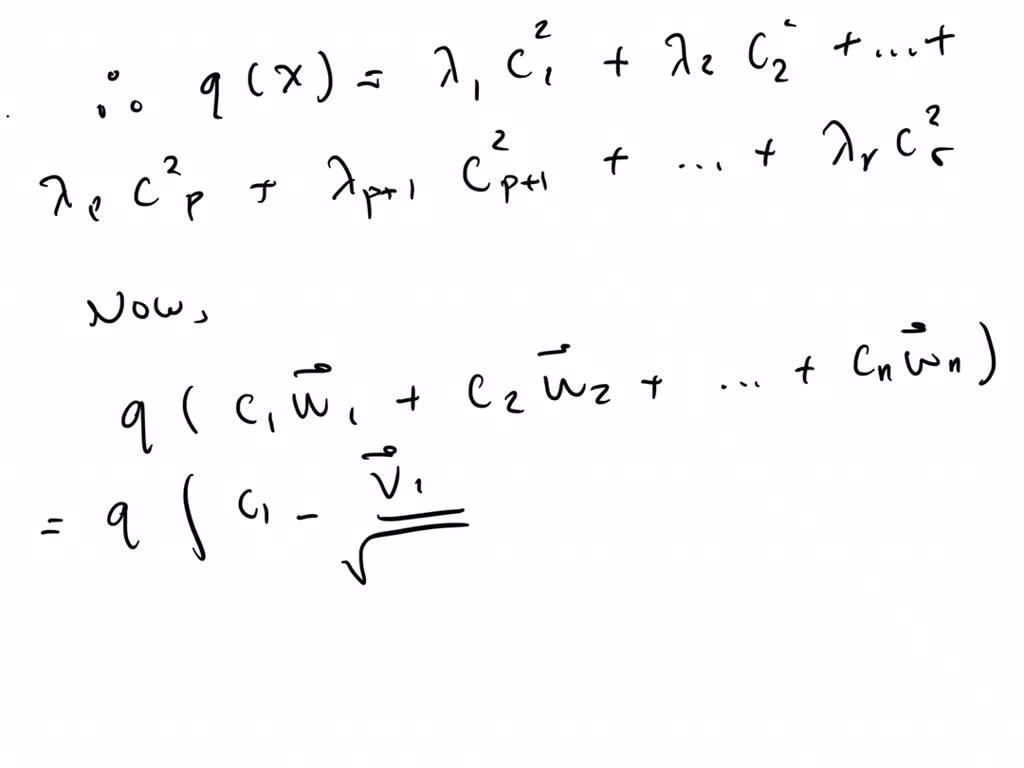 ∴ q(x) = λ₁ c₁² + λ₂ c₂² + ... +
λₚ c²ₚ + λₚ₊₁ c²ₚ₊₁ + ... + λᵣ cᵣ²
Now,
q ( c₁ w⃗₁ + c₂ w⃗₂ + ... + cₙ w⃗ₙ )
= q ( c₁ - v⃗₁ / √